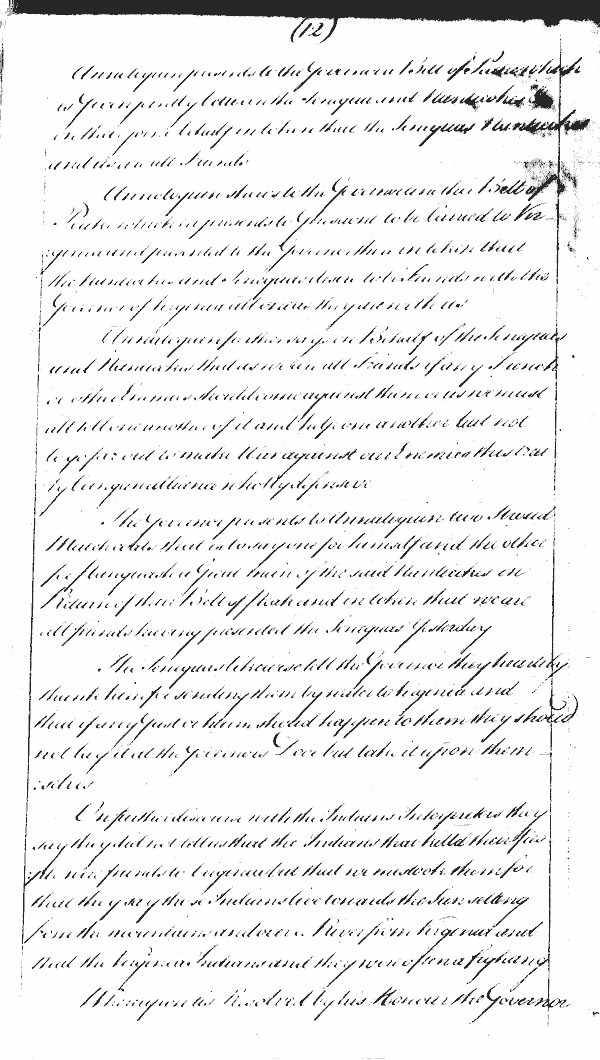 (12)
Annaloquin presents to the Governour a Belt of Peake which
is Given joyntly between the Seneques and
on their joint behalf in token that the Seneques
and us are all Friends
Annaloquin shews to the Governour another Belt of
Peake which he presents to you and to be Carried to Vir=
ginia and presented to the Governor there in token that
the and Seneques desire to be Friends with the
Governor of Virginia also as they are with us
Annaloquin further says on Behalf of the Seneques
and that as we are all Friends if any French
or other Enemies should come against them or us we must
all tell one another of it and help one another but not
to go far out to make War against our Enemies this trea
ty being an alliance wholly defensive
The Governor presents to Annaloquin two Strowd
Matchcoats that is to say one for himself and the other
for a Great man of the said in
Return of their Belt of Peak and in token that we are
all friends having presented the Seneques Yesterday
The Seneques likewise tell the Governor they heartily
thank him for sending them by water to Virginia and
that if any just or harm should happen to them they should
not lay it at the Governors Door but take it upon them=
selves
On further discourse with the Indians Interpreters they
say they did not tell us that the Indians that killed their Peo
ple were friends to Virginia but that we mistook them for
that they say these Indians live towards the Sun setting
from the mountains and over a River from Virginia and
that the Virginia Indians and they were often a fighting
Whereupon its Resolved by his Honour the Governor